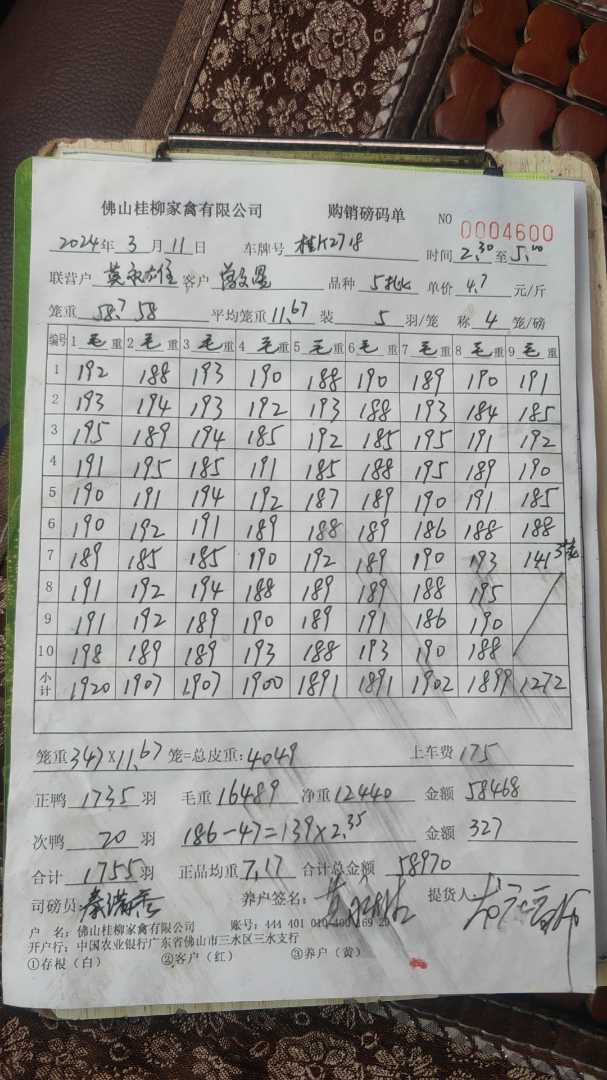 佛山桂柳家禽有限公司 购销磅码单 NO 0004600
2024年 3 月 11 日 车牌号 桂K2718 时间 2.30 至 5.00
联营户 客户 品种 单价 4.7 元/斤
笼重 58.7 58 平均笼重 11.67 装 5 羽/笼 称 4 笼/磅
编号 1 毛重 2 毛重 3 毛重 4 毛重 5 毛重 6 毛重 7 毛重 8 毛重 9 毛重
1 192 188 193 190 188 190 189 190 191
2 193 194 193 192 193 188 193 184 185
3 195 189 194 185 192 185 195 191 192
4 191 195 185 191 185 188 195 189 190
5 190 191 194 192 187 189 190 191 185
6 190 192 191 189 188 189 186 188 188
7 189 185 185 190 192 189 190 193 141 3笼
8 191 192 194 188 189 189 188 195
9 191 192 189 190 189 191 186 190
10 198 189 189 193 188 193 190 188
小计 1920 1907 1907 1900 1891 1891 1902 1899 1272
笼重 347×11.67 笼=总皮重: 4049 上车费 175
正鸭 1735 羽 毛重 16489 净重 12440 金额 58468
次鸭 20 羽 186-47=139×2.35 金额 327
合计 1755 羽 正品均重 7.17 合计总金额 58970
司磅员: 养户签名: 提货人:
户 名: 佛山桂柳家禽有限公司 账号: 444 401 010 400 169 29
开户行: 中国农业银行广东省佛山市三水区三水支行
①存根（白） ②客户（红） ③养户（黄）